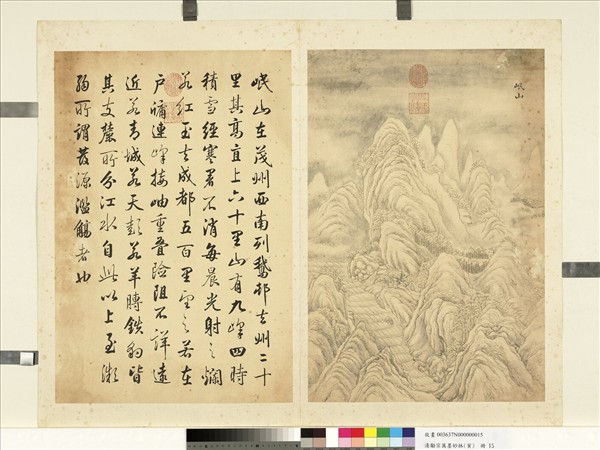 岷山
岷山在茂州西南列鵝村去州二十
里其高直上六十里山有九峰四時
積雪經寒暑不消每晨光射之爛
若紅玉去成都五百里望之若在
戶牖連峰接岫重疊險阻不詳遠
近若青城若天彭若羊膊鐵豹皆
其支麓所分江水自此以上至微
弱所謂發源濫觴者也
故畫 003637N000000015
清勵宗萬墨妙珠林(寅) 冊 15